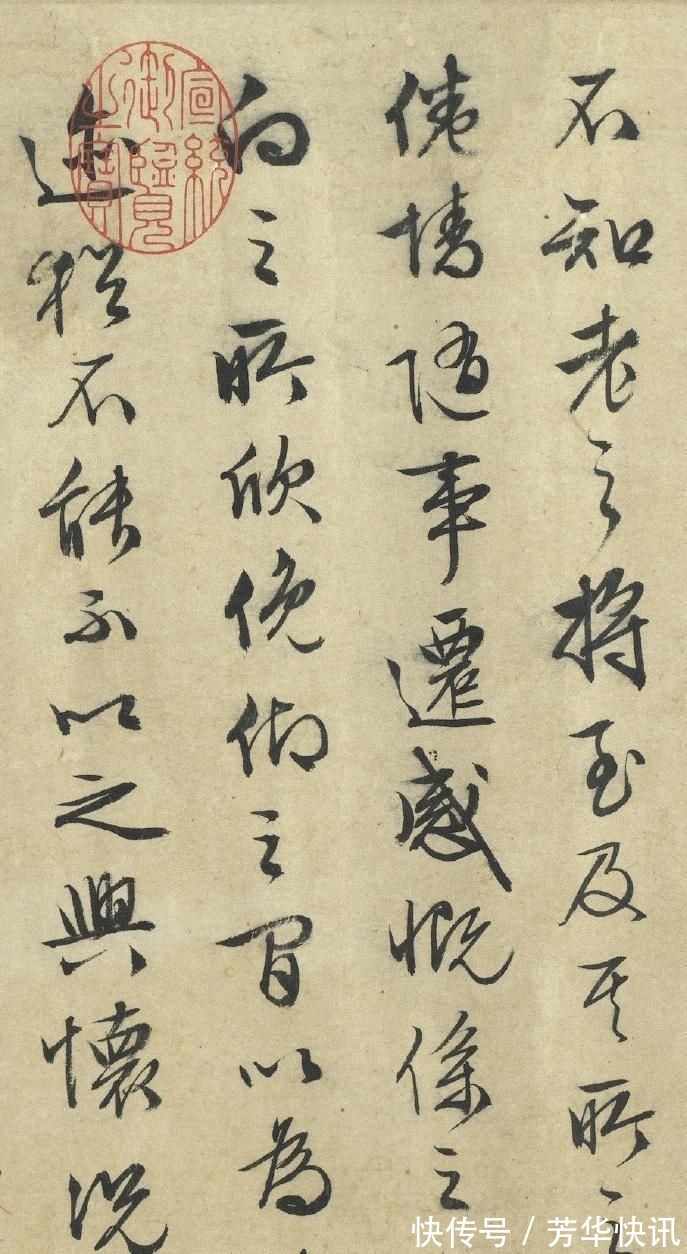 不知老之將至及其所之
倦情隨事遷感慨係之
向之所欣俛仰之間以為
迹猶不能不以之興懷況
宣統御覽之寶
快传号 / 芳华快讯